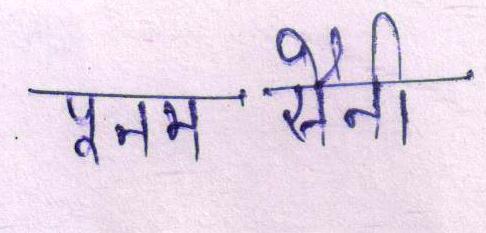 पूनम सैनी